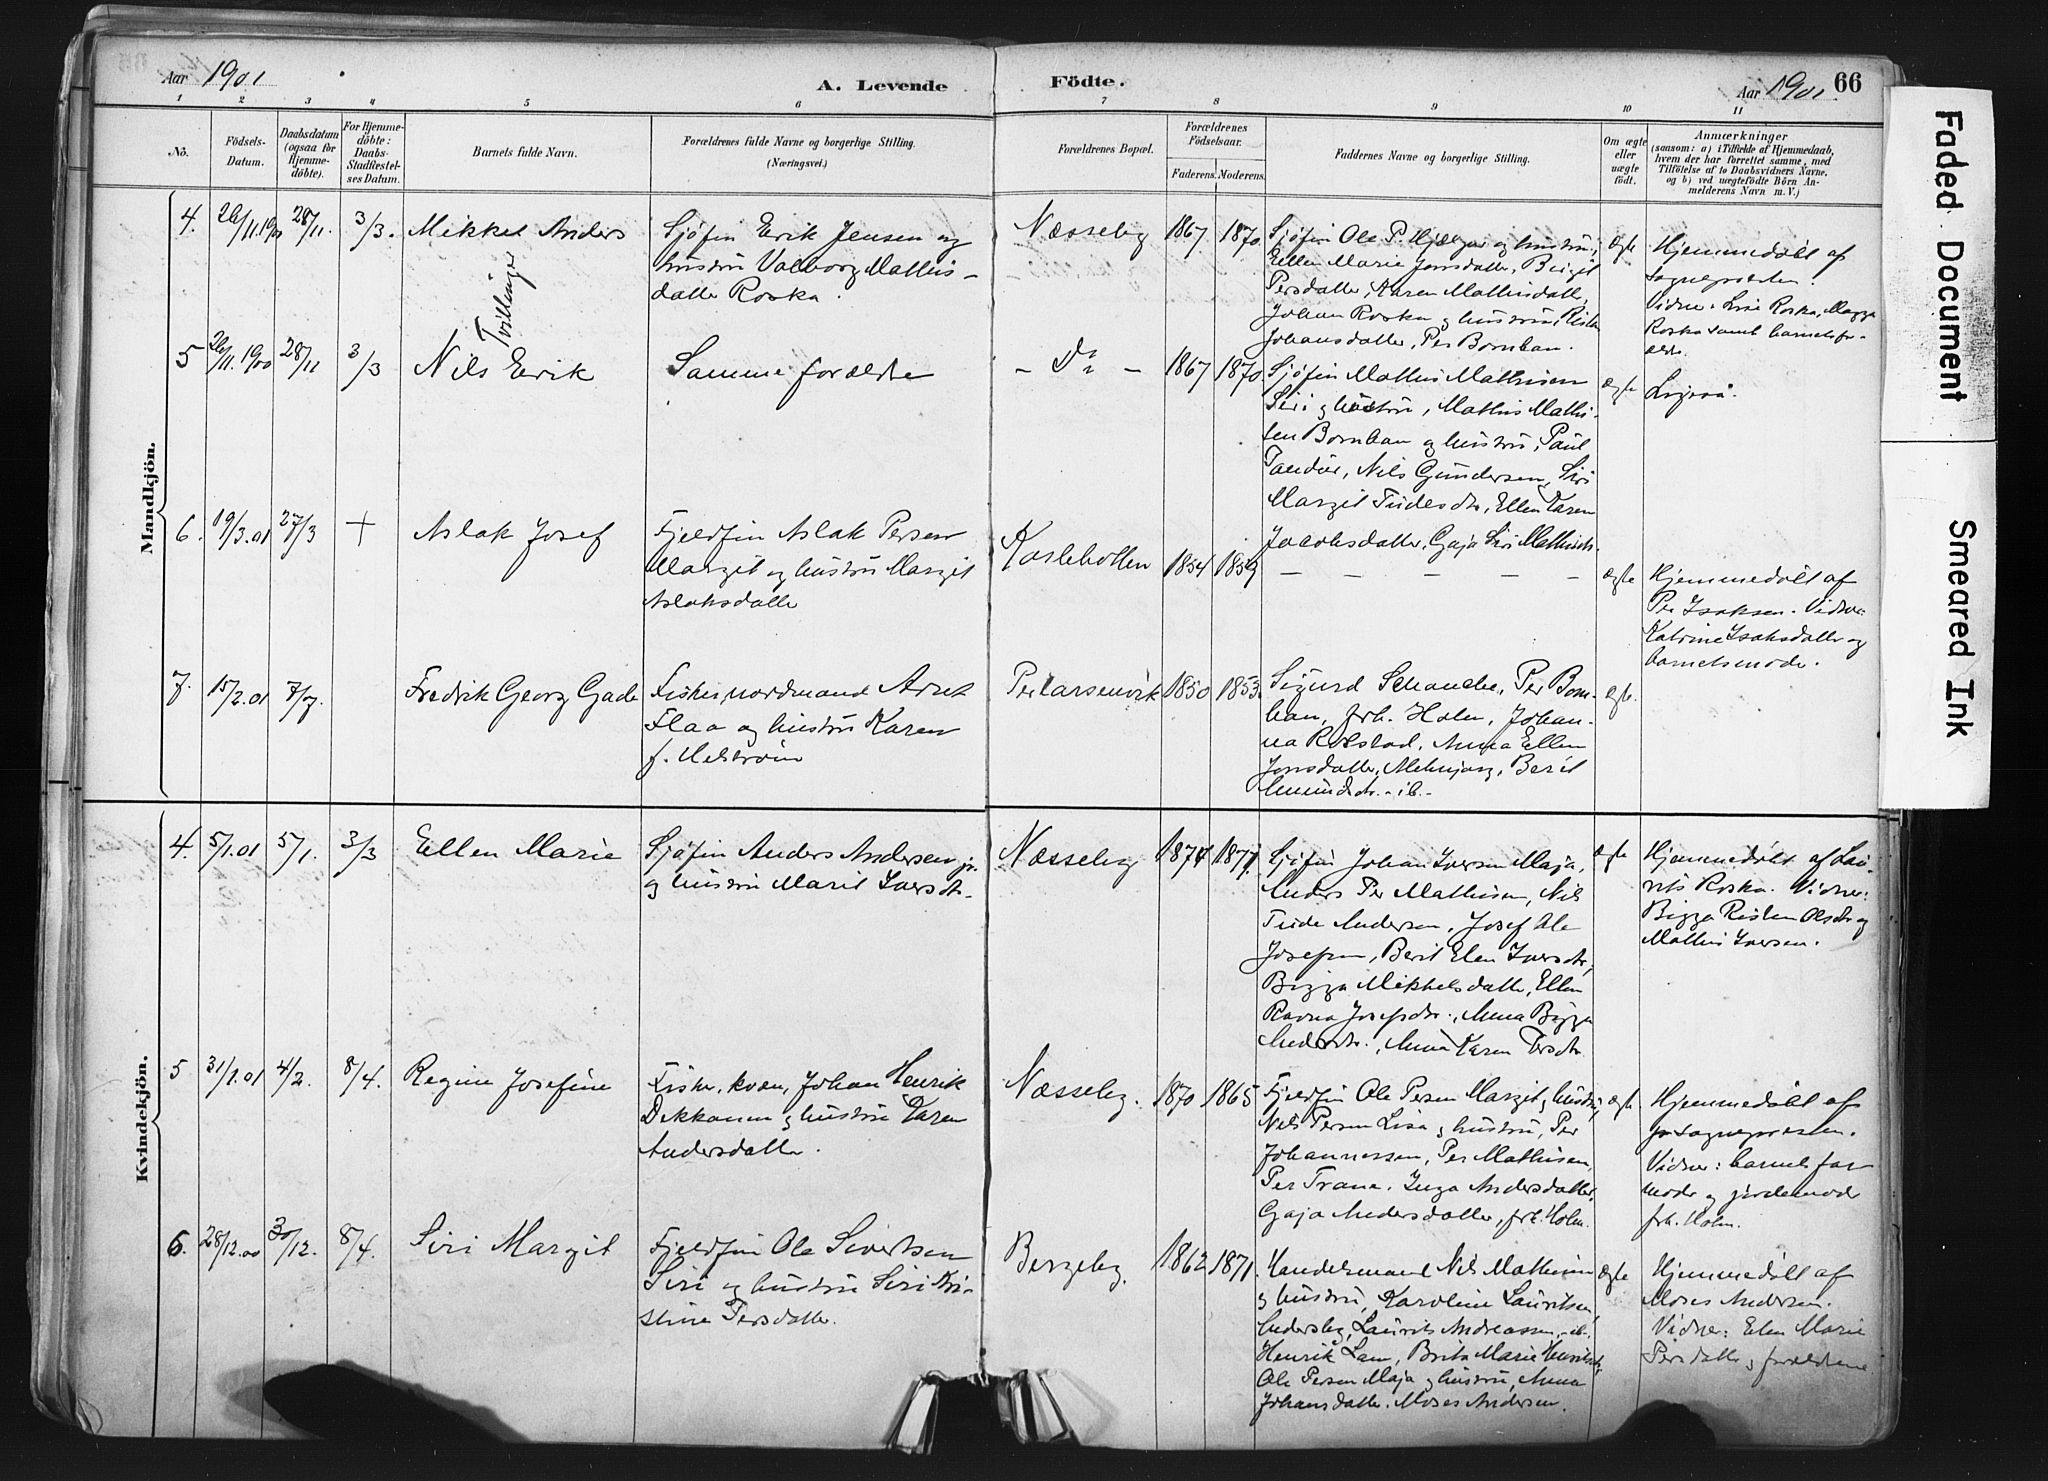 Aar 1901
A. Levende
Födte.
Aar 1901.
66
1 2 3 4 5 6 7 8 9 10 11
No.
Födsels-
Datum.
Daabsdatum
(ogsaa för
Hjemme-
döbte).
For Hjemme-
döbte:
Daabs-
Stadfæstel-
ses Datum.
Barnets fulde Navn.
Forældrenes fulde Navne og borgerlige Stilling.
(Næringsvei.)
Forældrenes Bopæl.
Forældrenes
Födselsaar.
Faderens. Moderens.
Faddernes Navne og borgerlige Stilling.
Om ægte
eller
uægte
födt.
Anmærkninger
(saasom: a) i Tilfælde af Hjemmedaab,
hvem der har forrettet samme, med
Tilföielse af to Daabsvidners Navne,
og b) ved uægtefödte Börn An-
melderens Navn m. V.)
Mandkjön.
4. 26/11.1900 28/11. 3/3.
Mikkel Anders
Tvillinger
Sjøfin Erik Jensen og
hustru Valborg Mathis-
datter Roska.
Næsseby
1867 1870.
Sjøfin Ole P. Hjælper og hustru,
Ellen Marie Jonsdatter, Birgit
Persdatter, Karen Mathisdatter,
Johan Roska og hustru, Risten
Johansdatter, Per Bornban.
Ægte
Hjemmedøbt af
sognepresten.
Vidner: Lisa Roska, Magga
Roska samt barnets for-
ældre.
5 26/11.1900 28/11 3/3
Nils Erik
Samme forældre
- Do -
1867 1870.
Sjøfin Mathis Mathisen
Siri og hustru, Mathis Mathi-
sen Bornban og hustru, Paul
Nils Gundersen, Siri
Margit Tudesdtr, Ellen Karen
Jacobsdatter, Gaja Siri Mathisdtr.
ægte
Ligesaa.
6. 19/3.01 27/3 +
Aslak Josef
Fjeldfin Aslak Persen
Margit og hustru Margit
Aslaksdatter
Karlebotten
1854 1859
- - - - -
Ægte
Hjemmedøbt af
Per Isaksen. Vidner:
Katrine Isaksdatter og
barnets moder.
7. 15/2.01 7/7.
Fredrik Georg Gade
Fisker, nordmand Arnt
Flaa og hustru Karen
f. Helstrøm
Perlarsenvik
1850 1853.
Sigurd Schanche, Per Born-
ban, frk. Holm, Johan-
na Rolstad, Anna Ellen
Jonsdatter, Berit
Amundsdtr. -ib.-
Ægte.
Kvindekjön.
4. 5/1.01 5/1. 3/3
Ellen Marie
Sjøfin Anders Andersen jr.
og hustru Marit Iversdtr.
Næsseby
1874 1877.
Sjøfin Johan Iversen Maja,
Anders Per Mathisen, Nils
Tude Andersen, Josef Ole
Josefsen, Berit Elen Iversdtr,
Bigga Mikkelsdatter, Ellen
Ravna Josefsdtr., Anna Bigga
Andersdtr., Anna Karen Persdtr.
Ægte
Hjemmedøbt af Lau-
rits Roska. Vidner:
Bigga Risten Olsdtr og
Mathis Iversen.
5 31/1.01 4/2. 8/4.
Regine Josefine
Fisker, kvæn, Johan Henrik
Dikkanen og hustru Karen
Andersdatter.
Næsseby.
1870 1865
Fjeldfin Ole Persen Margit og hustru,
Nils Persen Lisa og hustru, Per
Johannessen, Per Mathisen,
Per Trane, Inga Andersdatter,
Gaja Andersdatter, frk. Holm.
Ægte.
Hjemmedøbt af
sognepresten.
Vidner: barnets far
moder og jordemoder
frk. Holm.
6. 28/12.00 30/12. 8/4.
Siri Margit
Fjeldfin Ole Sivertsen
Siri og hustru Siri Kri-
stine Persdatter.
Bergeby.
1862 1871.
Handelsmand Nils Mathisen
og hustru, Karoline Lauritsen,
Andersby, Laurits Andreassen, -ib.-
Henrik Lam, Brita Marie Henriksdtr,
Ole Persen Maja og hustru, Anna
Johansdatter, Moses Andersen.
Ægte
Hjemmedøbt af
Moses Andersen.
Vidner: Elen Marie
Persdatter og forældrene
Faded Document
Smeared Ink